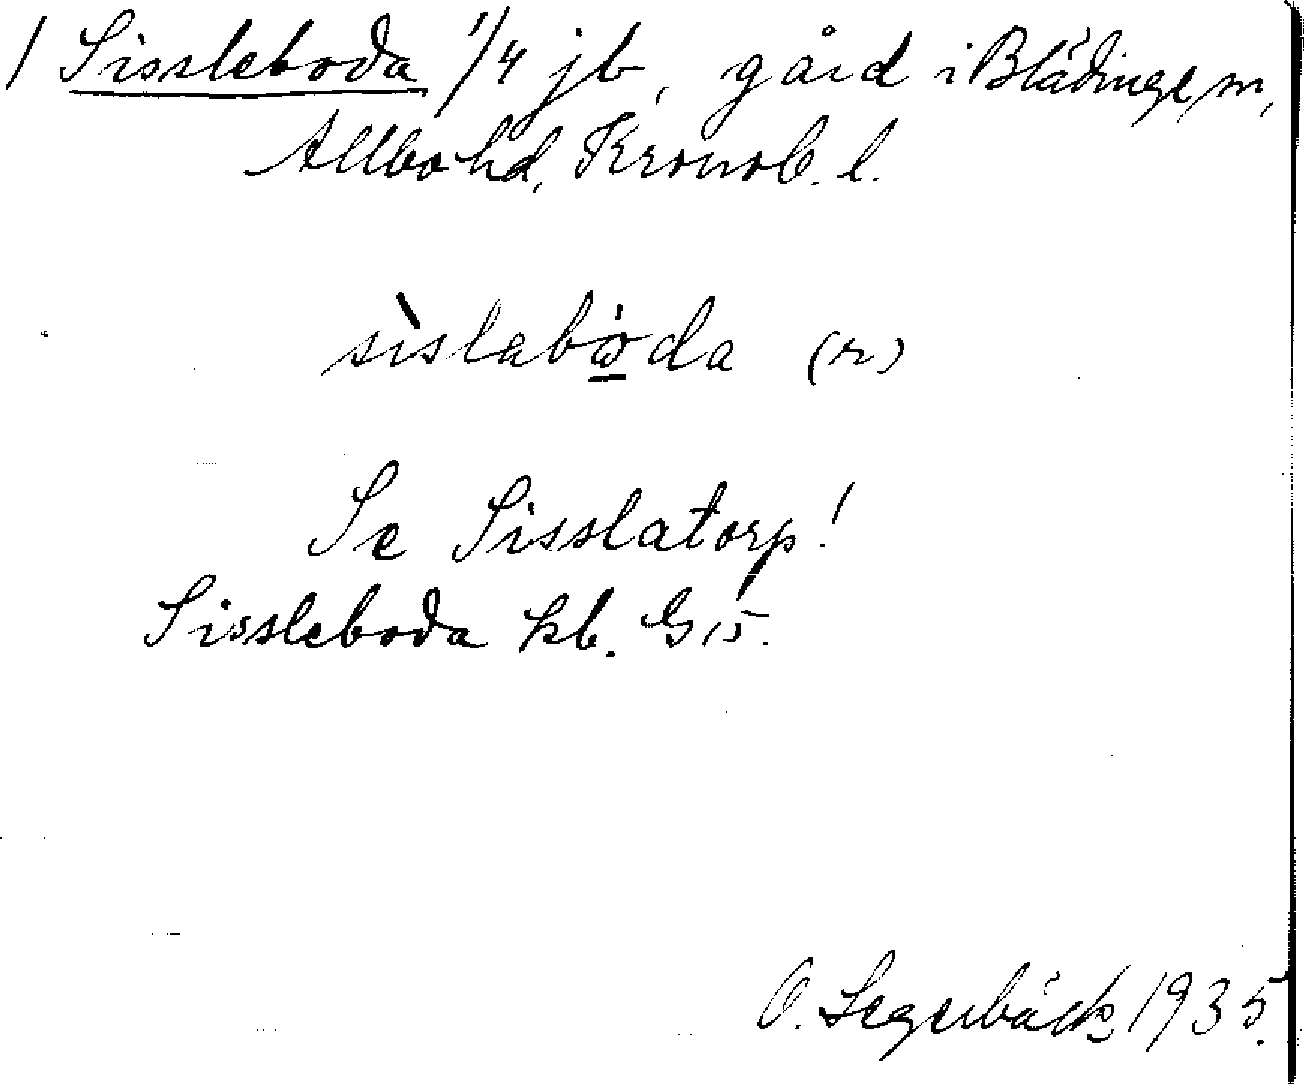 / Sissleboda 1/4 jb, gård i Blädinge, m,
Allbo hd, Kronob. l.
sìslabὼ̲da (r)
Se Sisslatorp!
Sissleboda kb. G15.
O. Segerbäck 1935.